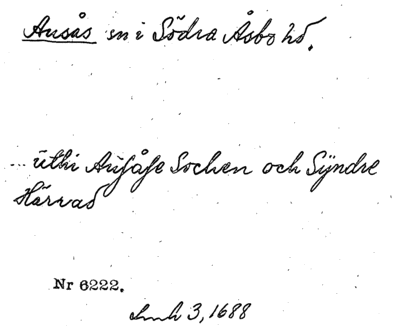 Ausås sn i Södra Åsbo hd.
... uthi Ausåse Sochen och Syndre
Härrad
Nr 6222.
3, 1688